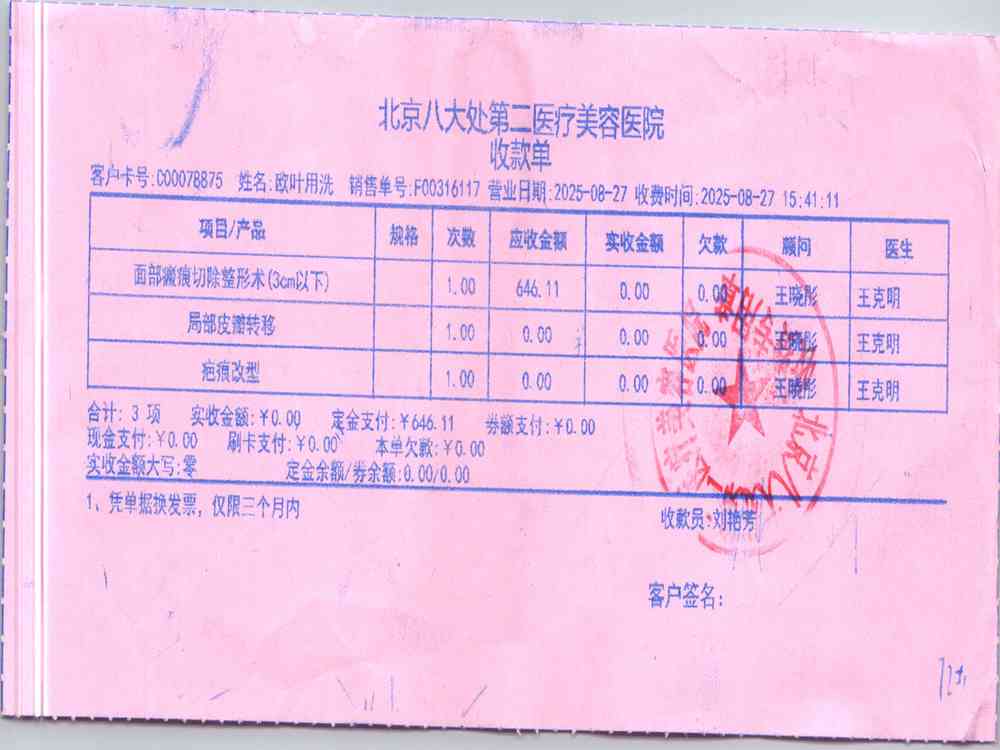 北京八大处第二医疗美容医院
收款单
客户卡号:C00078875 姓名:欧叶用洗 销售单号:F00316117 营业日期:2025-08-27 收费时间:2025-08-27 15:41:11
项目/产品 规格 次数 应收金额 实收金额 欠款 顾问 医生
面部瘢痕切除整形术(3cm以下) 1.00 646.11 0.00 0.00 王晓彤 王克明
局部皮瓣转移 1.00 0.00 0.00 0.00 王晓彤 王克明
疤痕改型 1.00 0.00 0.00 0.00 王晓彤 王克明
合计: 3 项 实收金额:￥0.00 定金支付:￥646.11 券额支付:￥0.00
现金支付:￥0.00 刷卡支付:￥0.00 本单欠款:￥0.00
实收金额大写:零 定金余额/券余额:0.00/0.00
1、凭单据换发票，仅限三个月内
收款员:刘艳芳
客户签名: